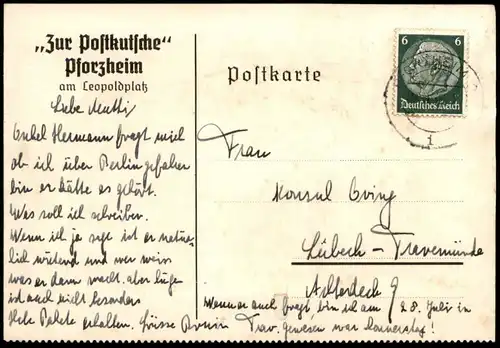 „Zur Postkutsche“
Pforzheim
am Leopoldplatz
Postkarte
6 6
Deutsches Reich
Liebe Mutti,
Onkel Hermann fragt mich
ob ich über Berlin gefahren
bin er hätte es gehört.
Was soll ich schreiben.
Wenn ich ja sage ist er natür-
lich wütend und wer weiss
was er dann macht. aber lügen
ist auch nicht besonders
Pakete erhalten. Grüsse
Frau
Konsul
Lübeck-Travemünde
Achterdeck 9
Wenn er auch fragt bin ich am 28. Juli in
Trav. gewesen war Donnerstag!